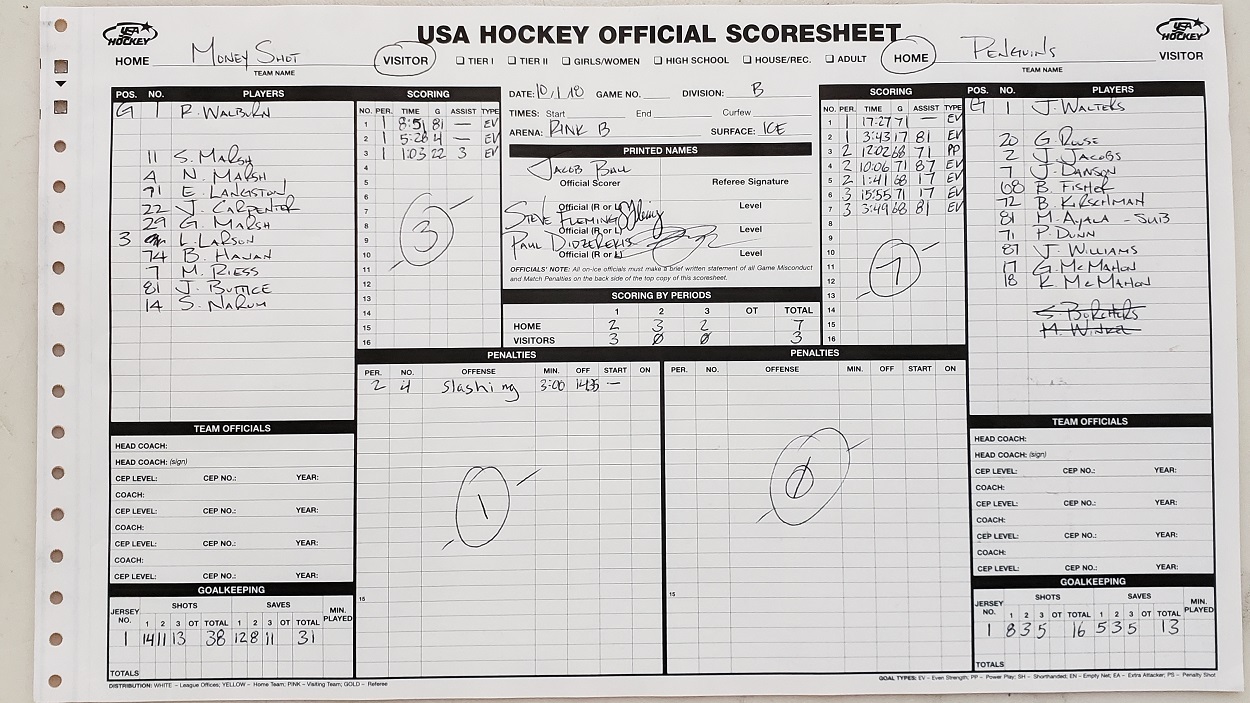 USA HOCKEY OFFICIAL SCORESHEET
USA HOCKEY
USA HOCKEY
HOME MONEY SHOT VISITOR
TEAM NAME
☐ TIER I ☐ TIER II ☐ GIRLS/WOMEN ☐ HIGH SCHOOL ☐ HOUSE/REC. ☐ ADULT
HOME PENGUINS VISITOR
TEAM NAME
POS. NO. PLAYERS
G 1 R. WALBURN
11 S. MARSH
4 N. MARSH
71 E. LANGSTON
22 J. CARPENTER
29 G. MARSH
3 L. LARSON
74 B. HANAN
7 M. RIESS
81 J. BUTTICE
14 S. NARUM
SCORING
NO. PER. TIME G ASSIST TYPE
1 1 8:51 81 — EV
2 1 5:28 4 — EV
3 1 1:03 22 3 EV
4
5
6
7
8
9
10
11
12
13
14
15
16
3
DATE: 10/1/18 GAME NO. DIVISION: B
TIMES: Start End Curfew
ARENA: RINK B SURFACE: ICE
PRINTED NAMES
JACOB BALL
Official Scorer Referee Signature
Official (R or L) Level
STEVE FLEMING
Official (R or L) Level
PAUL
Official (R or L) Level
OFFICIALS' NOTE: All on-ice officials must make a brief written statement of all Game Misconduct
and Match Penalties on the back side of the top copy of this scoresheet.
SCORING BY PERIODS
1 2 3 OT TOTAL
HOME 2 3 2 7
VISITORS 3 0 0 3
SCORING
NO. PER. TIME G ASSIST TYPE
1 1 17:27 71 — EV
2 1 3:43 17 81 EV
3 2 12:02 68 71 PP
4 2 10:06 71 87 EV
5 2 1:41 68 17 EV
6 3 15:55 71 17 EV
7 3 3:49 68 81 EV
8
9
10
11
12
13
14
15
16
7
POS. NO. PLAYERS
G 1 J. WALTERS
20 G. ROUSE
2 J. JACOBS
7 J. DANSON
68 B. FISHER
72 B. KIRSCHMAN
81 M. AYALA - SUB
71 P. DUNN
87 J. WILLIAMS
17 G. MCMAHON
18 K. MCMAHON
S. BORCHERS
M. WINKEL
PENALTIES
PER. NO. OFFENSE MIN. OFF START ON
2 4 Slashing 3:00 14:35 —
1
15
PENALTIES
PER. NO. OFFENSE MIN. OFF START ON
0
15
TEAM OFFICIALS
HEAD COACH:
HEAD COACH: (sign)
CEP LEVEL: CEP NO.: YEAR:
COACH:
CEP LEVEL: CEP NO.: YEAR:
COACH:
CEP LEVEL: CEP NO.: YEAR:
COACH:
CEP LEVEL: CEP NO.: YEAR:
GOALKEEPING
SHOTS SAVES
JERSEY NO. 1 2 3 OT TOTAL 1 2 3 OT TOTAL MIN. PLAYED
1 14 11 13 38 12 8 11 31
TOTALS
TEAM OFFICIALS
HEAD COACH:
HEAD COACH: (sign)
CEP LEVEL: CEP NO.: YEAR:
COACH:
CEP LEVEL: CEP NO.: YEAR:
COACH:
CEP LEVEL: CEP NO.: YEAR:
COACH:
CEP LEVEL: CEP NO.: YEAR:
GOALKEEPING
SHOTS SAVES
JERSEY NO. 1 2 3 OT TOTAL 1 2 3 OT TOTAL MIN. PLAYED
1 8 3 5 16 5 3 5 13
TOTALS
DISTRIBUTION: WHITE – League Offices; YELLOW – Home Team; PINK – Visiting Team; GOLD – Referee
GOAL TYPES: EV – Even Strength; PP – Power Play; SH – Shorthanded; EN – Empty Net; EA – Extra Attacker; PS – Penalty Shot